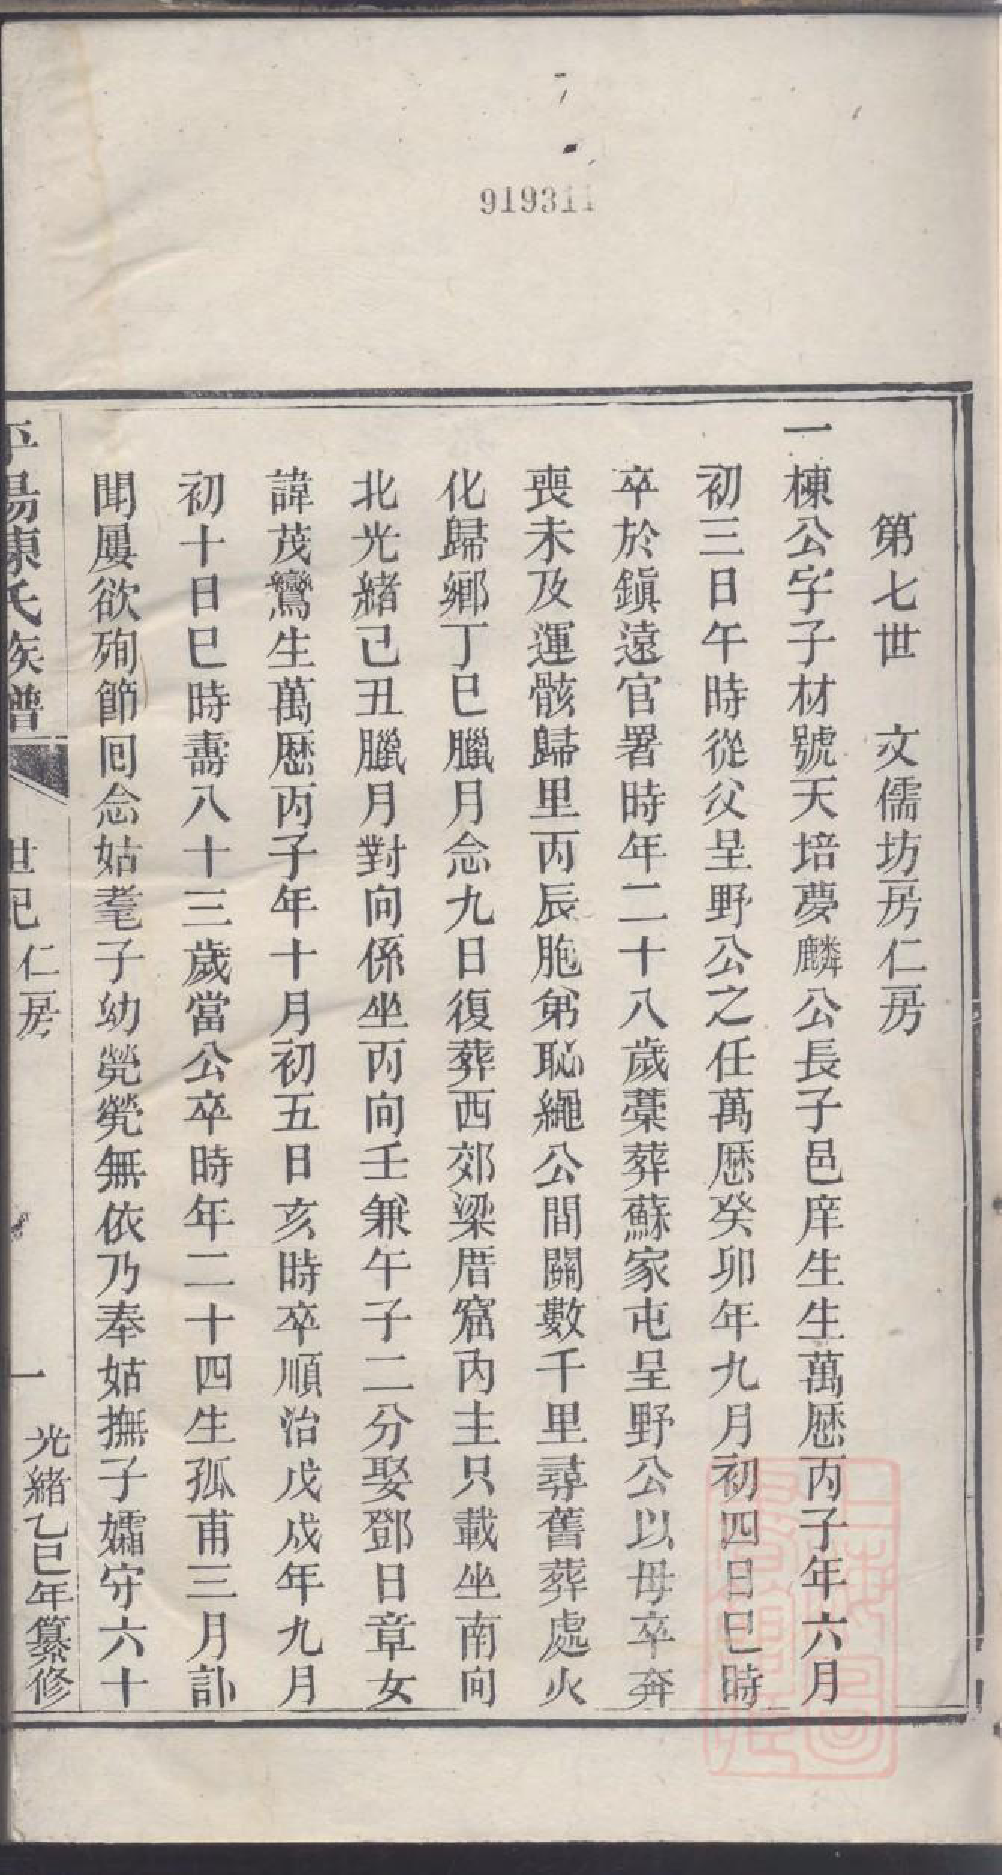 919311
第七世　文儒坊房仁房
一棟公字子材號天培夢麟公長子邑庠生生萬厯丙子年六月
初三日午時從父呈野公之任萬厯癸卯年九月初四日巳時
卒於鎮遠官署時年二十八歲藁葬蘇家屯呈野公以母卒奔
喪未及運骸歸里丙辰胞弟恥繩公間關數千里尋舊葬處火
化歸鄉丁巳臘月念九日復葬西郊梁厝窟內主只載坐南向
北光緒己丑臘月對向係坐丙向壬兼午子二分娶鄧日章女
諱茂鸞生萬厯丙子年十月初五日亥時卒順治戊戌年九月
初十日巳時壽八十三歲當公卒時年二十四生孤甫三月訃
聞屢欲殉節囘念姑耄子幼煢煢無依乃奉姑撫子孀守六十
平陽陳氏族譜
世紀 仁房
一
光緒乙巳年纂修